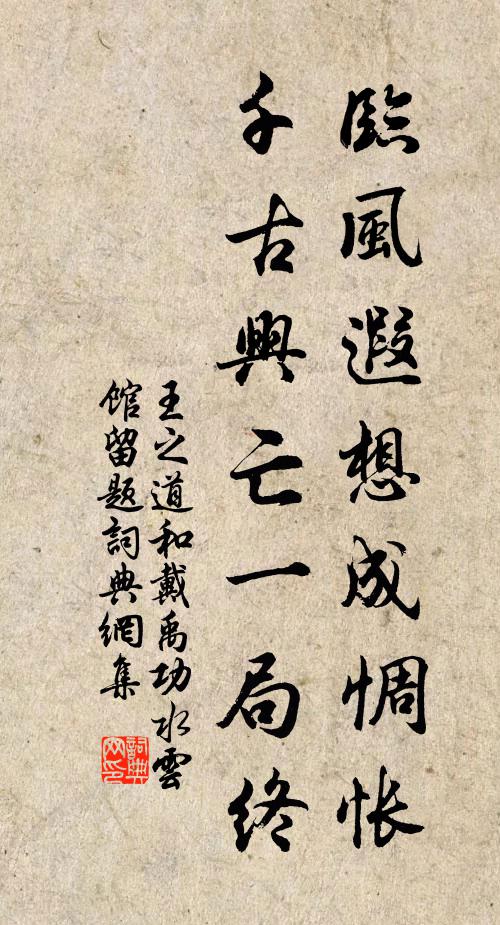 臨風遐想成惆悵
千古興亡一局終
王之道和戴禹功水雲
館留題詞典網集
詞典網印